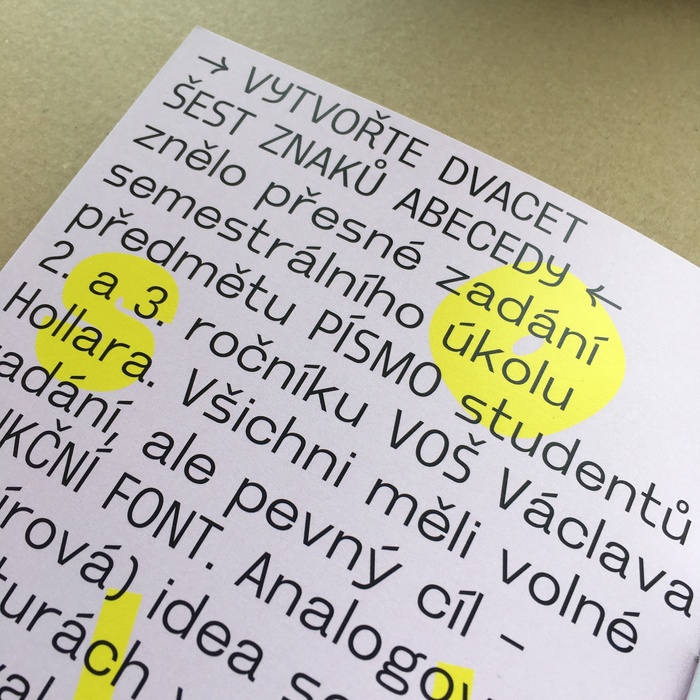 → VYTVOŘTE DVACET
ŠEST ZNAKŮ ABECEDY ←
znělo přesné zadání
semestrálního úkolu
předmětu PÍSMO studentů
2. a 3. ročníku VOŠ Václava
Hollara. Všichni měli volné
zadání, ale pevný cíl –
NKČNÍ FONT. Analogov
írová) idea se
turách
val